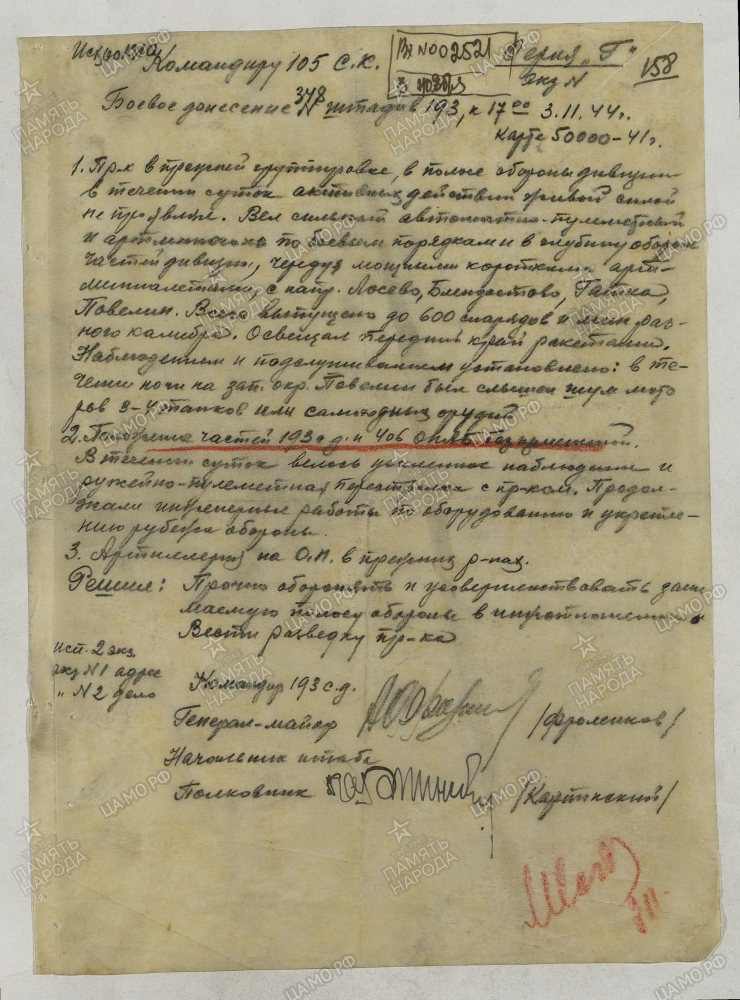 Командиру 105 с.к.
Вх № 02521
3 ноября
Серия "Г"
Экз N
158
Боевое донесение № 378 штадив 193, к 17 00 3.11.44г.
Карта 50000-41г.
1. Пр-к в прежней группировке, в полосе обороны дивизии
в течении суток активных действий живой силой
не проявлял. Вел сильный автоматно-пулеметный
и артминогонь по боевым порядкам и в глубину обороны
частей дивизии, чередуя мощными короткими арт-
миналетами, с напр. Лосево, Блендостово, Гатка,
Повелин. Всего выпущено до 600 снарядов и мин раз-
ного калибра. Освещал передний край ракетами.
Наблюдением и подслушиванием установлено: в те-
чении ночи на зап. окр. Повелин был слышен шум мото-
ров 3-4 танков или самоходных орудий.
2. Положение частей 193 с.д. и 406 ОПАБ без изменений.
В течении суток велось усиленное наблюдение и
ружейно-пулеметная перестрелка с пр-ком. Продол-
жали инженерные работы по оборудованию и укрепле-
нию рубежа обороны.
3. Артиллерия на О.П. в прежних р-нах.
Решил: Прочно оборонять и усовершенствовать зани-
маемую полосу обороны в инжотношении
Вести разведку пр-ка
исп. 2 экз.
экз N1 адрес
" N2 дело
Командир 193 с.д.
Генерал-майор /Фроленков/
Начальник штаба
Полковник /Картинский/
ПАМЯТЬ НАРОДА
ЦАМО.РФ